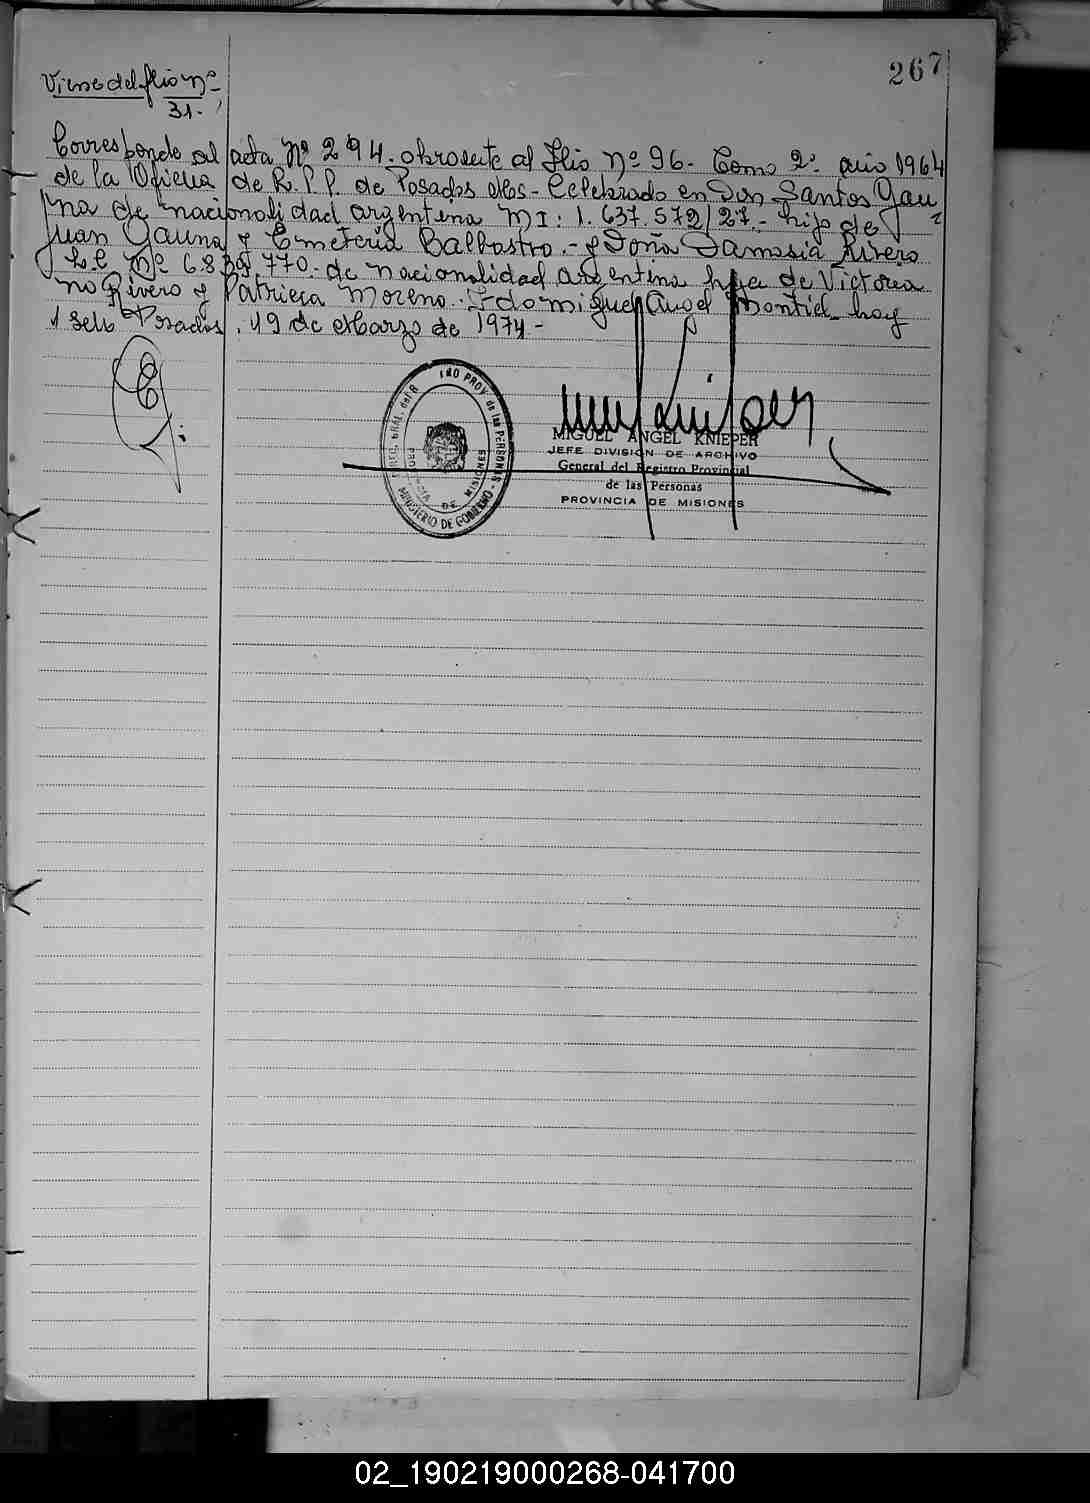 267
Viene del folio nº
31.-
Corresponde al acta Nº 294. obrante al folio Nº 96- Tomo 2º año 1964
de la Oficina de R.P.P. de Posadas Mos- Celebrado en Don Santos Gau
na de nacionalidad argentina M I: 1.637.572/27- hijo de
Juan Gauna y Emeteria Balbastro.- y Doña Damasia Rivero
L.C Nº 6.839.770- de nacionalidad argentina hija de Victoria
no Rivero y Patricia Moreno. Fdo Miguel Angel Montiel- hay
1 Sello Posadas, 19 de Marzo de 1974-
MIGUEL ANGEL KNIEPER
JEFE DIVISIÓN DE ARCHIVO
General del Registro Provincial
de las Personas
PROVINCIA DE MISIONES
PROV. de las PERSONAS
MINISTERIO DE GOBIERNO
PROVINCIA DE MISIONES
02_190219000268-041700